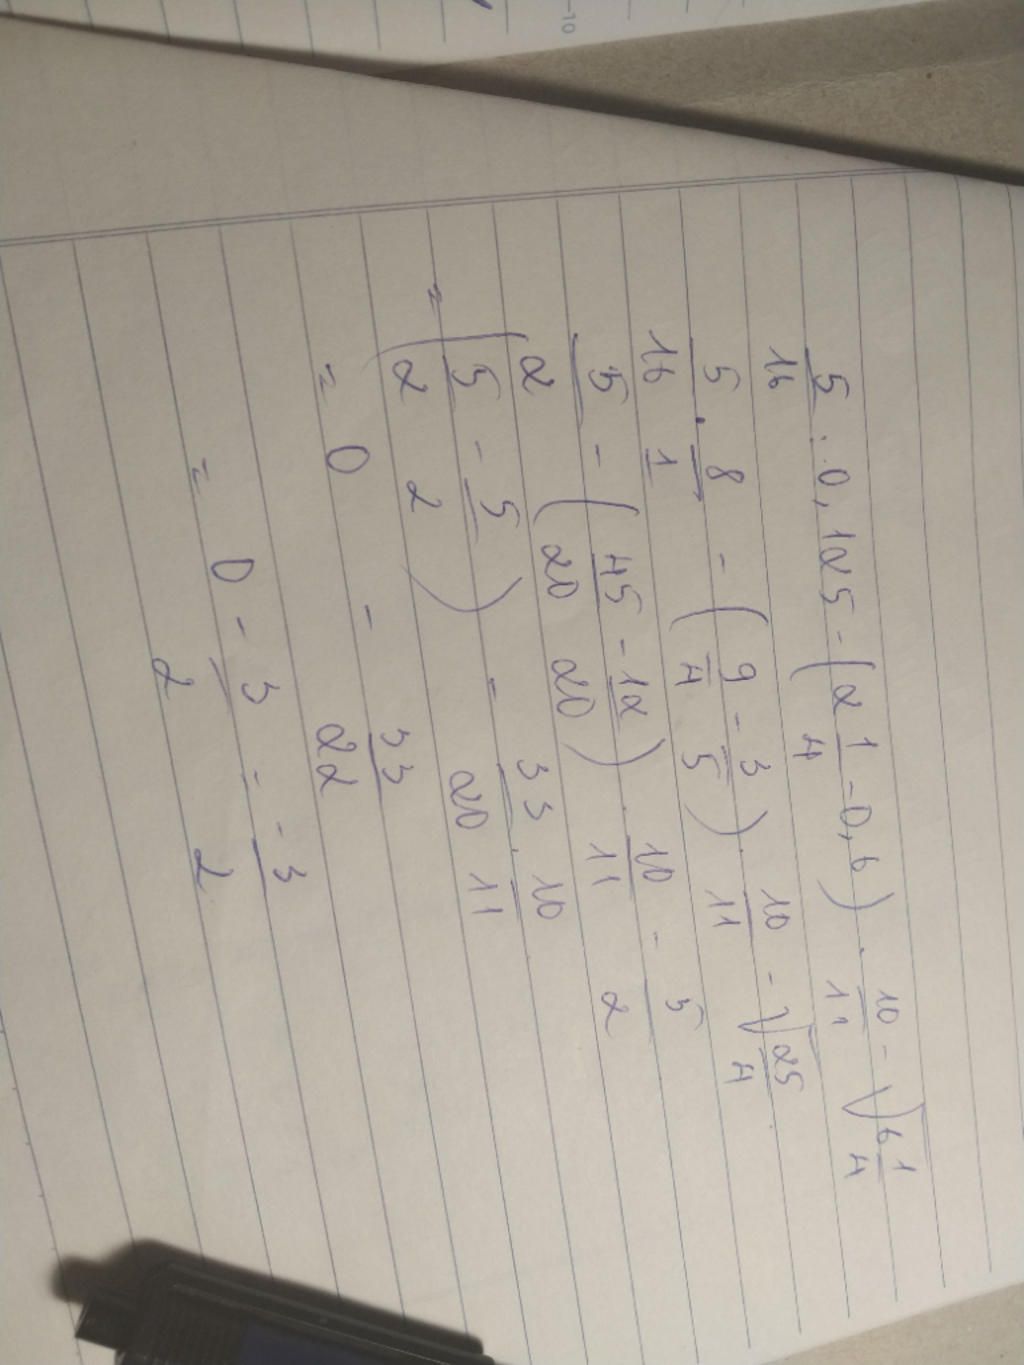 5/16 : 0,125 - (2 1/4 - 0,6) . 10/11 - √(6 1/4)
5/16 . 8/1 - (9/4 - 3/5) . 10/11 - √(25/4)
5/2 - (45/20 - 12/20) . 10/11 - 5/2
= (5/2 - 5/2) - 33/20 . 10/11
= 0 - 33/22
= 0 - 3/2 = -3/2
-10